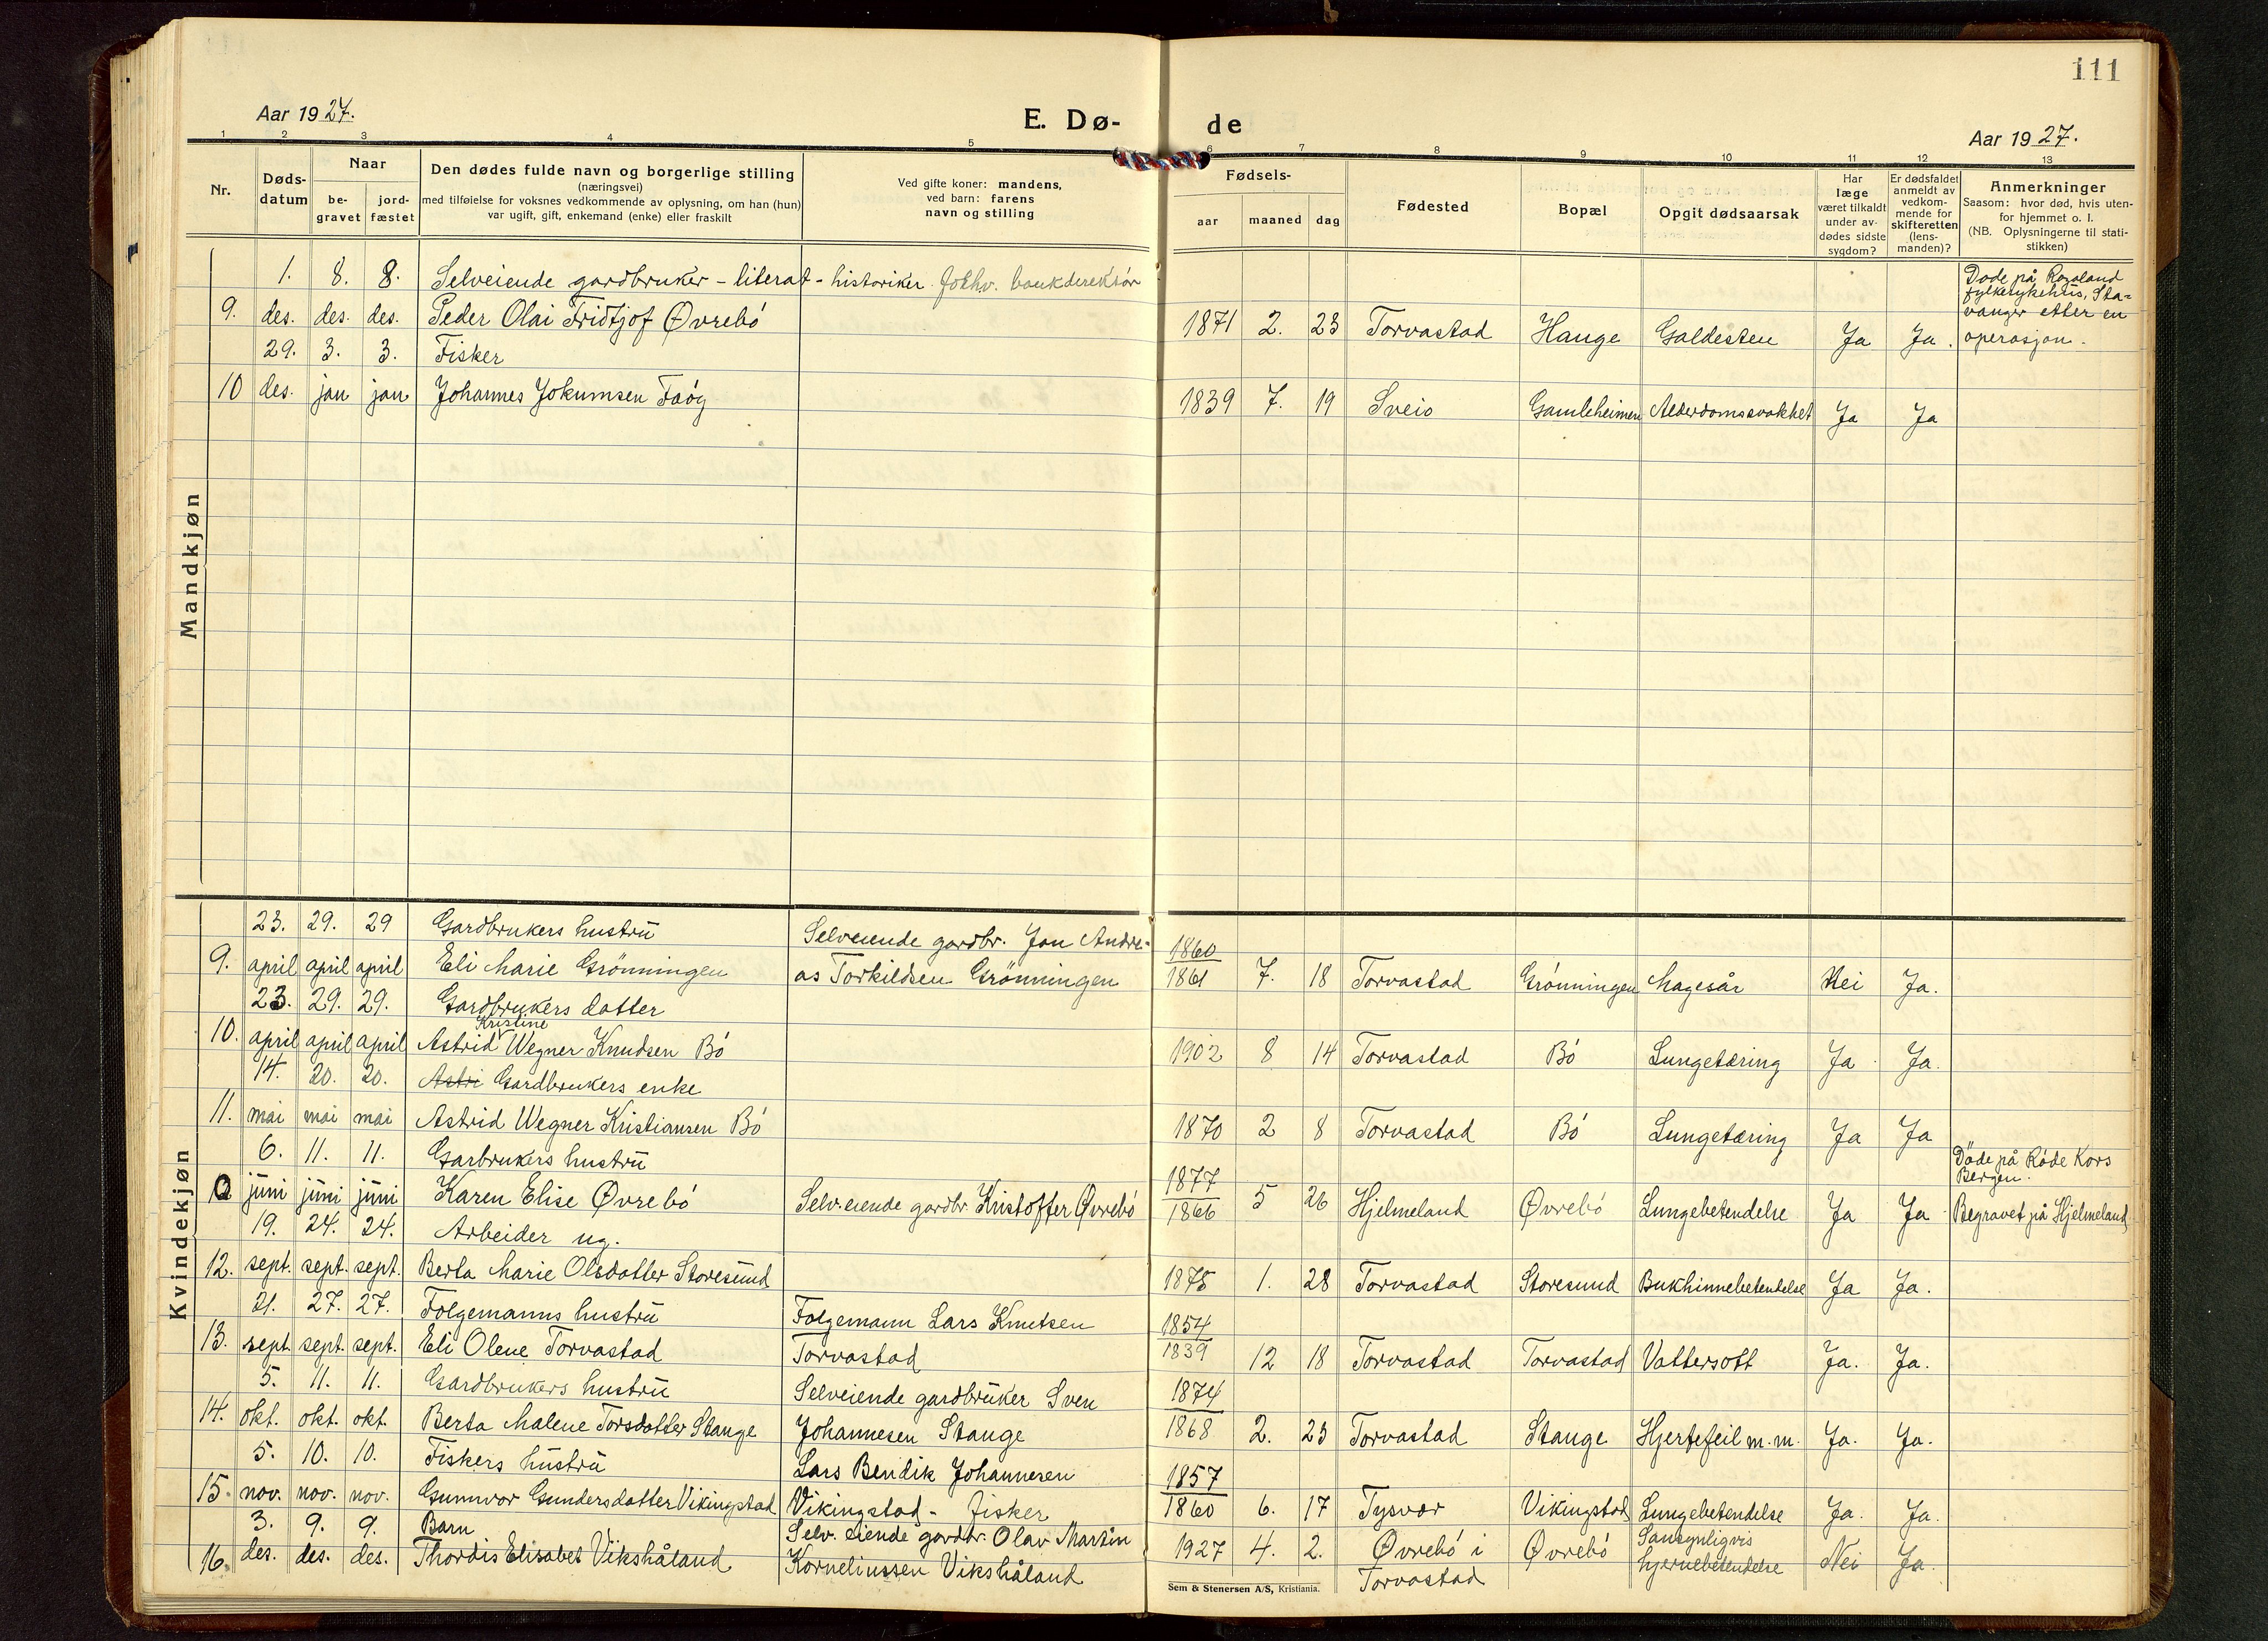 111
Aar 1927.
E. Dø-
de
Aar 1927.
1 2 3 4 5 6 7 8 9 10 11 12 13
Nr.
Døds-
datum
Naar
be-
gravet
jord-
fæstet
Den dødes fulde navn og borgerlige stilling
(næringsvei)
med tilføielse for voksnes vedkommende av oplysning, om han (hun)
var ugift, gift, enkemand (enke) eller fraskilt
Ved gifte koner: mandens,
ved barn: farens
navn og stilling
Fødsels-
aar
maaned
dag
Fødested
Bopæl
Opgit dødsaarsak
Har
læge
været tilkaldt
under av-
dødes sidste
sygdom?
Er dødsfaldet
anmeldt av
vedkom-
mende for
skifteretten
(lens-
manden)?
Anmerkninger
Saasom: hvor død, hvis uten-
for hjemmet o. l.
(NB. Oplysningerne til stati-
stikken)
Mandkjøn
1. 8. 8. Selveiende gardbruker - literat - historiker
Døde på Rogaland
fylkesykehus, Sta-
vanger etter en
9. des. des. des. Peder Olai Fridtjof Øvrebó 1871 2. 23 Torvastad Hauge Galdesten Ja Ja. operasjon.
29. 3. 3. Fisker
10 des. jan jan Johannes Jokumsen 1839 7. 19 Sveio Gamleheimen Alderdomssvakhet Ja Ja
Kvindekjøn
23. 29. 29 Gardbrukers hustrū Selveiende gardbr. Jon Andre- 1860
9. april april april Eli Marie Grönningen as Torkildsen Grönningen 1861 7. 18 Torvastad Grónningen Magesår Nei Ja.
23. 29. 29. Gardbrukers datter
Kristine
10. april april april Astrid Wegner Knudsen Bó 1902 8 14 Torvastad Bó Lungetæring Ja Ja.
14. 20. 20. Astri Gardbrukers enke
11. mai mai mai Astrid Wegner Kristiansen Bó 1870 2 8 Torvastad Bó Lungetæring Ja Ja
6. 11. 11. Garbrukers hustrū 1877 Döde på Röde Kors
Bergen.
juni juni juni Karen Elise Øvrebó Selveiende gardbr. Kristoffer Øvrebó 1866 5 26 Hjelmeland Øvrebó Lungebetendelse Ja Ja Begravet på Hjelmeland
19. 24. 24. Arbeider ug.
12. sept. sept. sept. Berta Marie Olsdatter Storesund 1875 1. 28 Torvastad Storesund Bukhinnebetendelse Ja Ja.
21. 27. 27. Folgemanns hustrū Folgemann Lars Knutsen 1854
13. sept. sept. sept. Eli Olene Torvastad Torvastad 1839 12 18 Torvastad Torvastad Vattersott Ja. Ja.
5. 11. 11. Gardbrukers hustrū Selveiende gardbrūker Sven 1874
14. okt. okt. okt. Berta Malene Torsdatter Stange Johannesen Stange 1868 2. 23 Torvastad Stange Hjertefeil m.m. Ja. Ja.
5. 10. 10. Fiskers hustrū Lars Bendik Johannesen 1857
15. nov. nov. nov. Gunnvor Gundersdatter Vikingstad Vikingstad - fisker 1860 6. 17 Tysvær Vikingstad Lungebetendelse Ja. Ja.
3. 9. 9. Barn Selv. eiende gardbr. Olav Martin Sansynligvis
16. des. des. des. Thordis Elisabet Vikshåland Korneliussen Vikshåland 1927 4. 2. Øvrebó i Øvrebó hjernebetendelse Nei Ja.
Torvastad
Sem & Stenersen A/S, Kristiania.